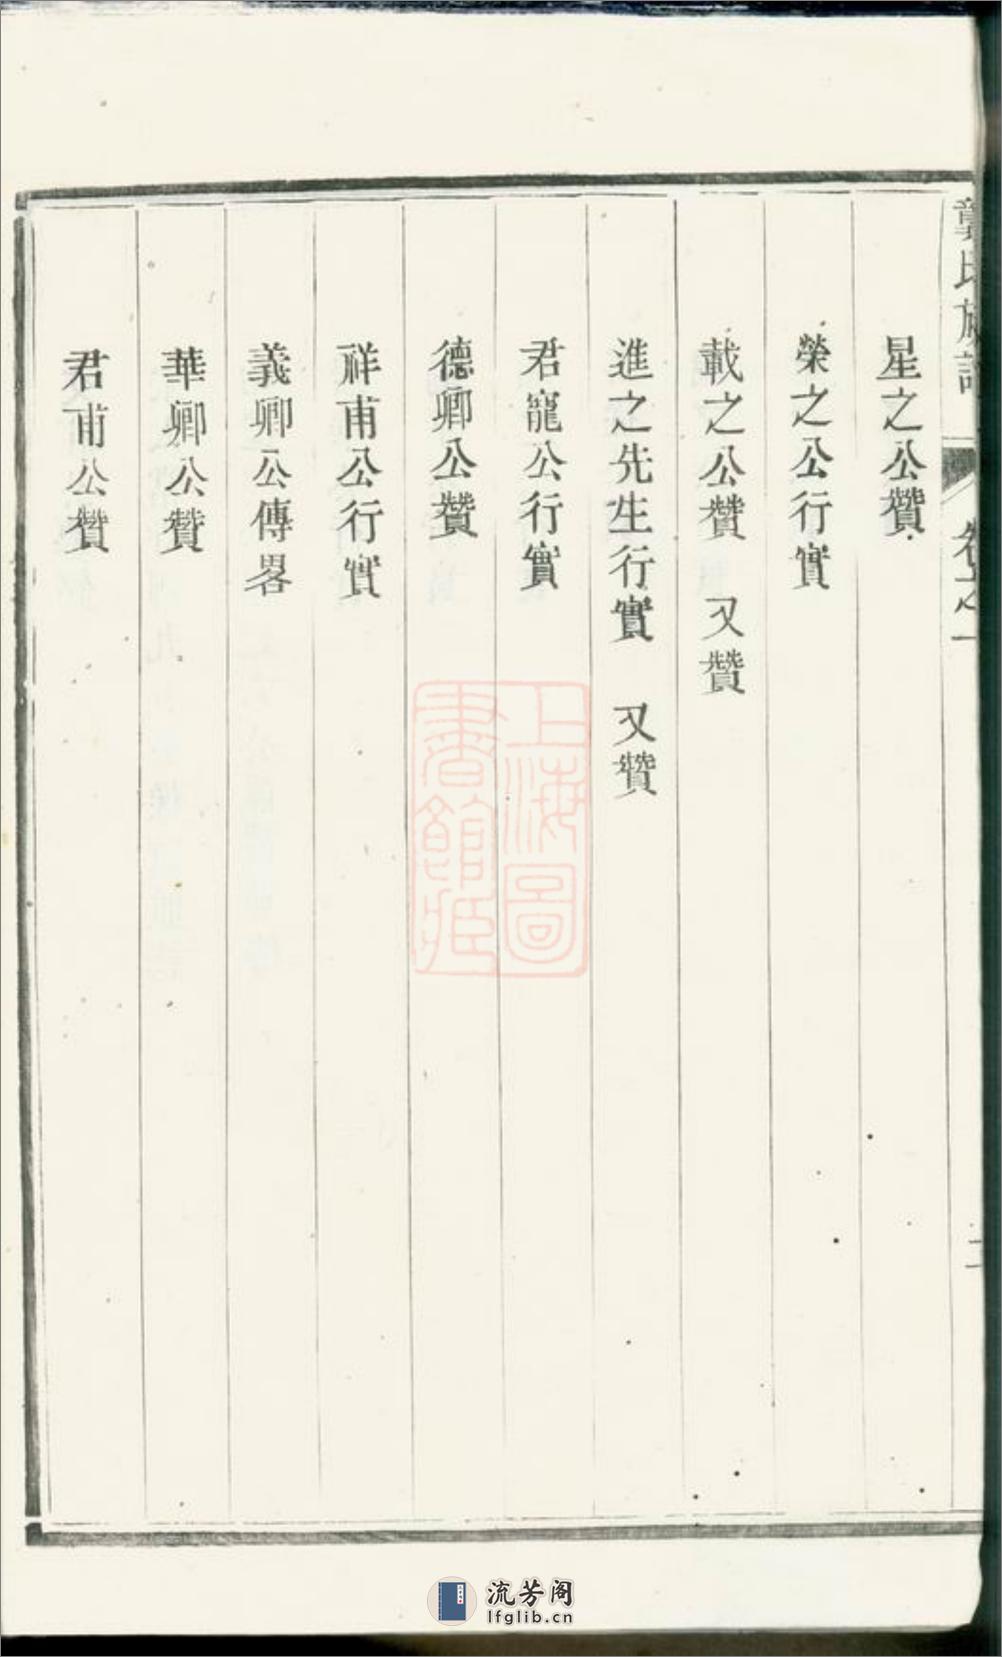 氏族譜
卷之一
二
星之公贊
榮之公行實
載之公贊 又贊
進之先生行實 又贊
君寵公行實
德卿公贊
祥甫公行實
義卿公傳畧
華卿公贊
君甫公贊
上海圖書館藏
流芳阁
lfglib.cn